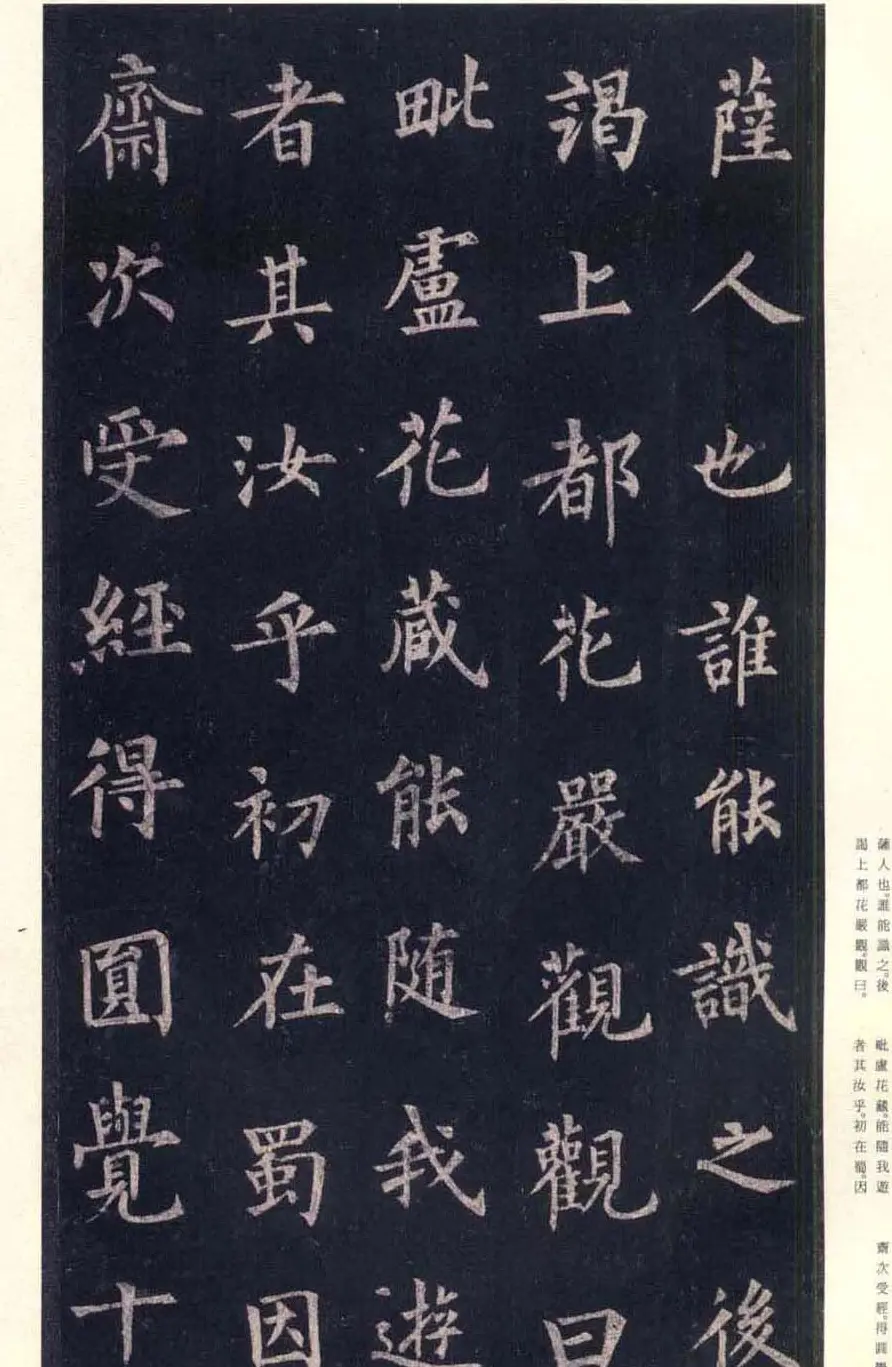 薩人也誰能識之後
謁上都花嚴觀觀曰
毗盧花蔵能随我遊
者其汝乎初在蜀因
齋次受經得圓覺十
薩人也。誰能識之。後
謁上都花嚴觀。觀曰。
毗盧花藏。能隨我遊
者其汝乎。初在蜀。因
齋次受經。得圓